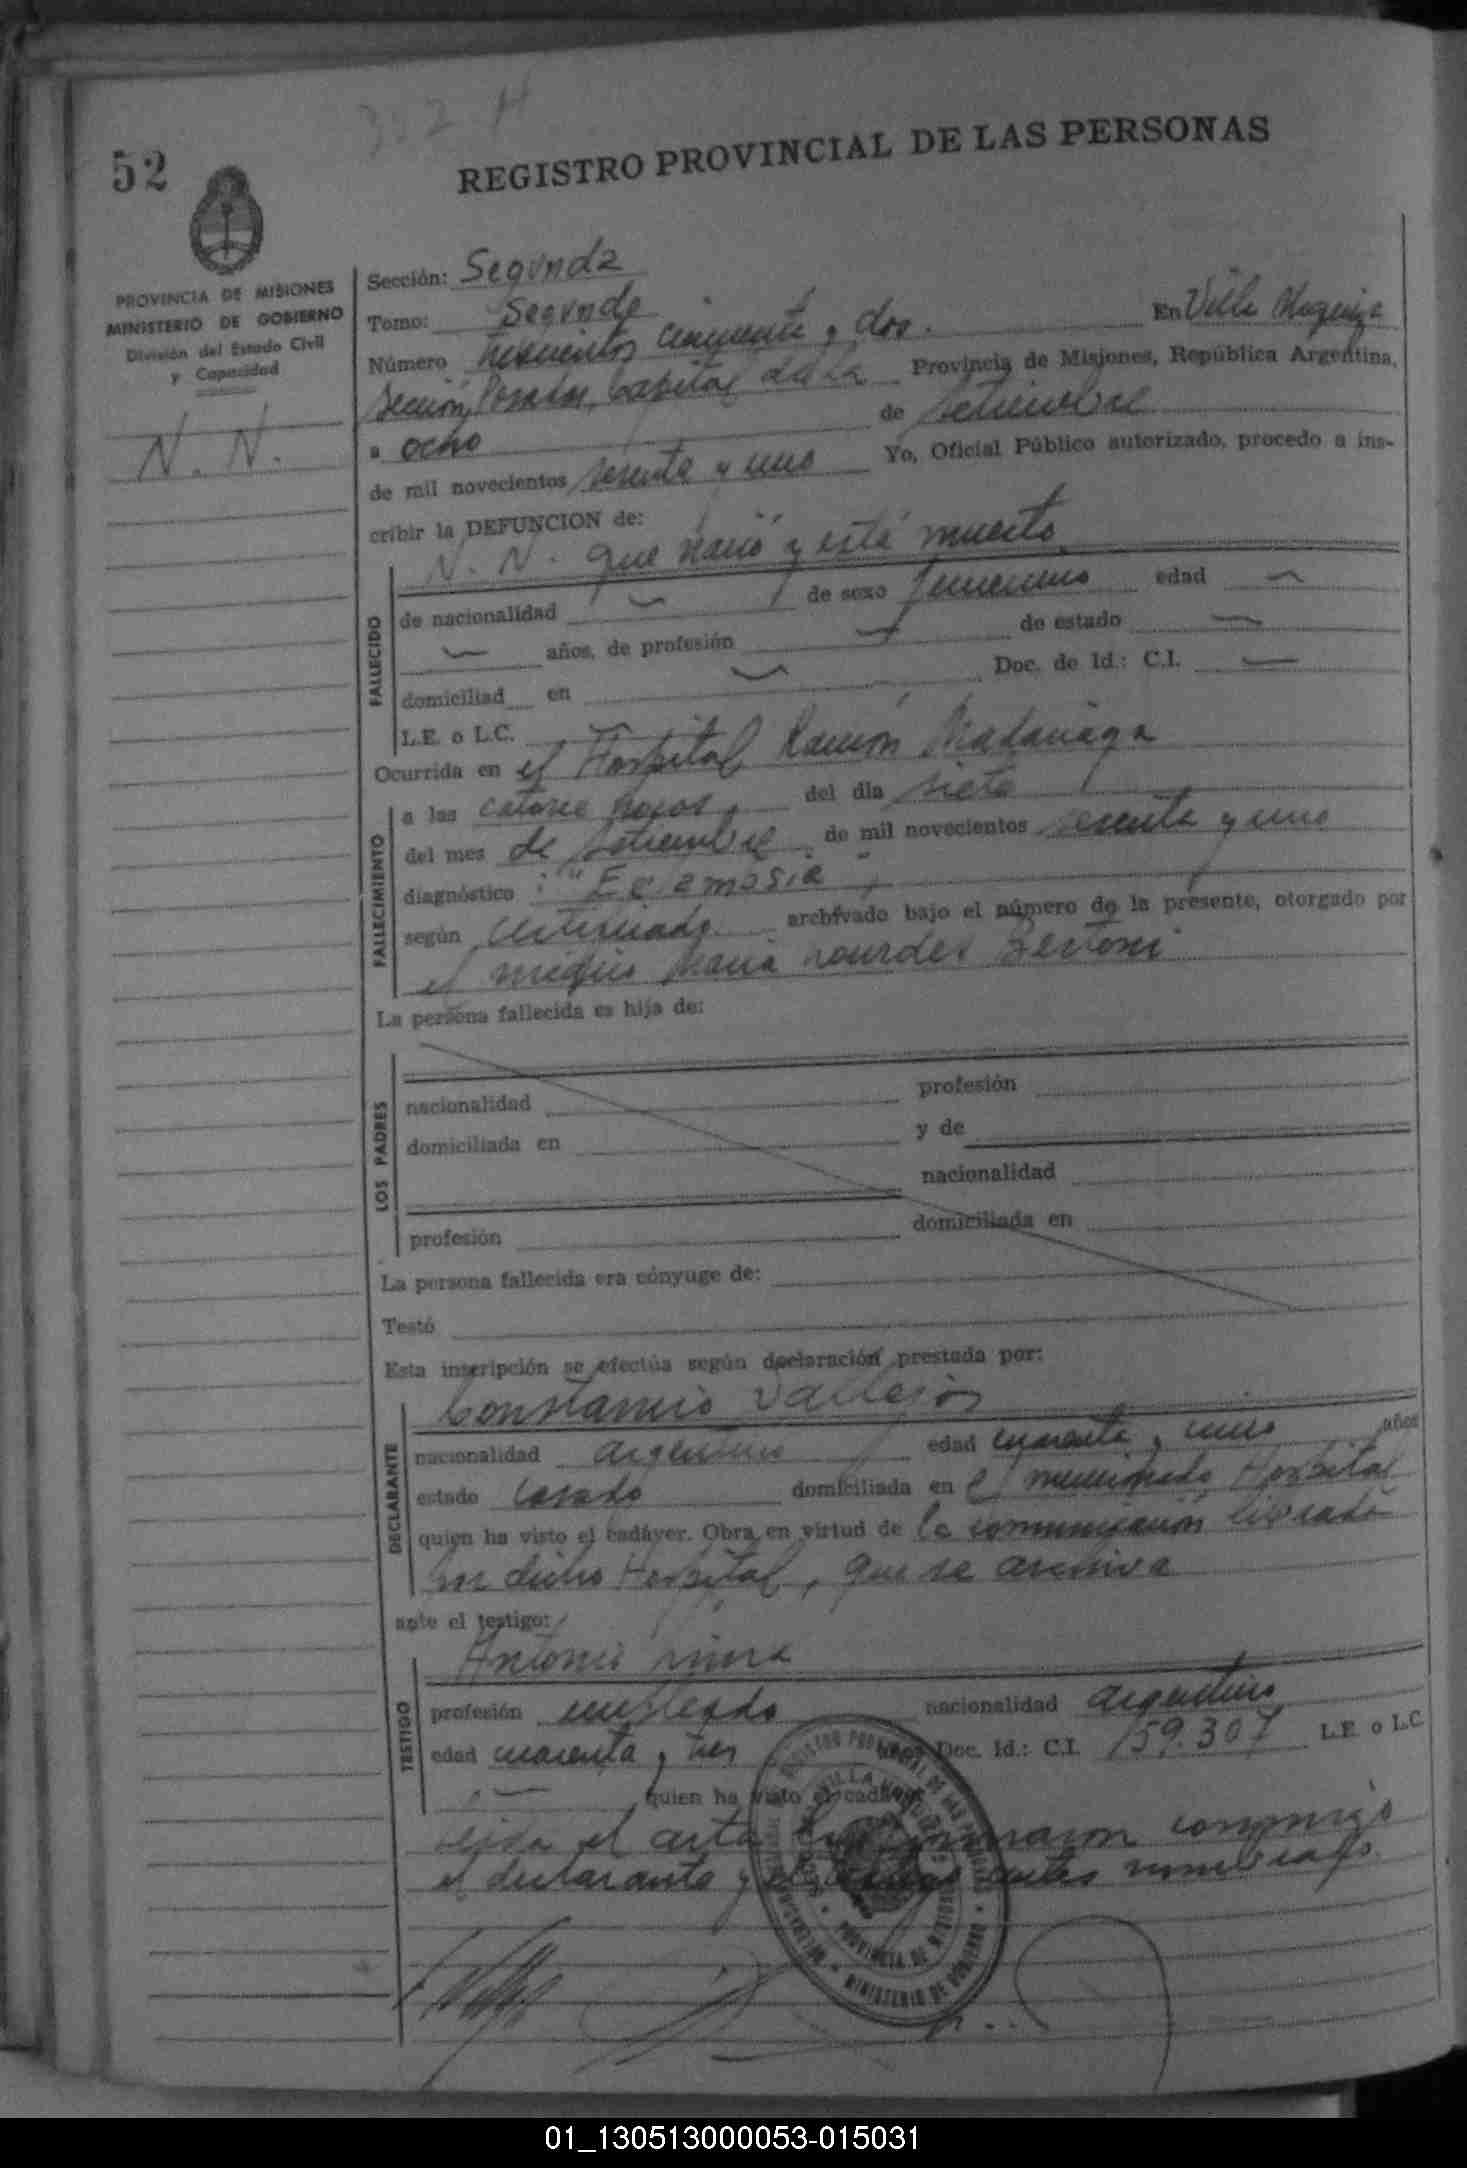 352 H
52
REGISTRO PROVINCIAL DE LAS PERSONAS
PROVINCIA DE MISIONES
MINISTERIO DE GOBIERNO
División del Estado Civil
y Capacidad
N. N.
Sección: Segunda
Tomo: Segundo
Número trescientos cincuenta y dos. En Villa Urquiza
Sección Posadas, Capital de la Provincia de Misiones, República Argentina,
a ocho de setiembre
de mil novecientos sesenta y uno Yo, Oficial Público autorizado, procedo a ins-
cribir la DEFUNCION de:
N. N. que nació y está muerto
FALLECIDO
de nacionalidad — de sexo femenino edad —
— años, de profesión — de estado —
domiciliad en — Doc. de Id.: C.I. —
L.E. o L.C. —
Ocurrida en el Hospital Ramón Madariaga
FALLECIMIENTO
a las catorce horas, del día siete
del mes de setiembre de mil novecientos sesenta y uno
diagnóstico : "
según certificado archivado bajo el número de la presente, otorgado por
el médico María Lourdes Bertoni
La persona fallecida es hija de:
LOS PADRES
nacionalidad profesión
domiciliada en y de
nacionalidad
profesión domiciliada en
La persona fallecida era cónyuge de:
Testó
Esta inscripción se efectúa según declaración prestada por:
Constancio Vallejos
DECLARANTE
nacionalidad argentino edad cuarenta y uno años
estado casado domiciliada en el mencionado Hospital
quien ha visto el cadáver. Obra en virtud de la comunicación librada
en dicho Hospital, que se archiva
ante el testigo:
Antonio
TESTIGO
profesión empleado nacionalidad argentino
edad cuarenta y tres Doc. Id.: C.I. 159.307 L.E. o L.C.
— quien ha visto el cadáver
Leída el acta la firmaron conmigo
el declarante y el testigo antes nombrados.
REGISTRO PROVINCIAL DE LAS PERSONAS
PROVINCIA DE MISIONES
MINISTERIO DE GOBIERNO
01_130513000053-015031